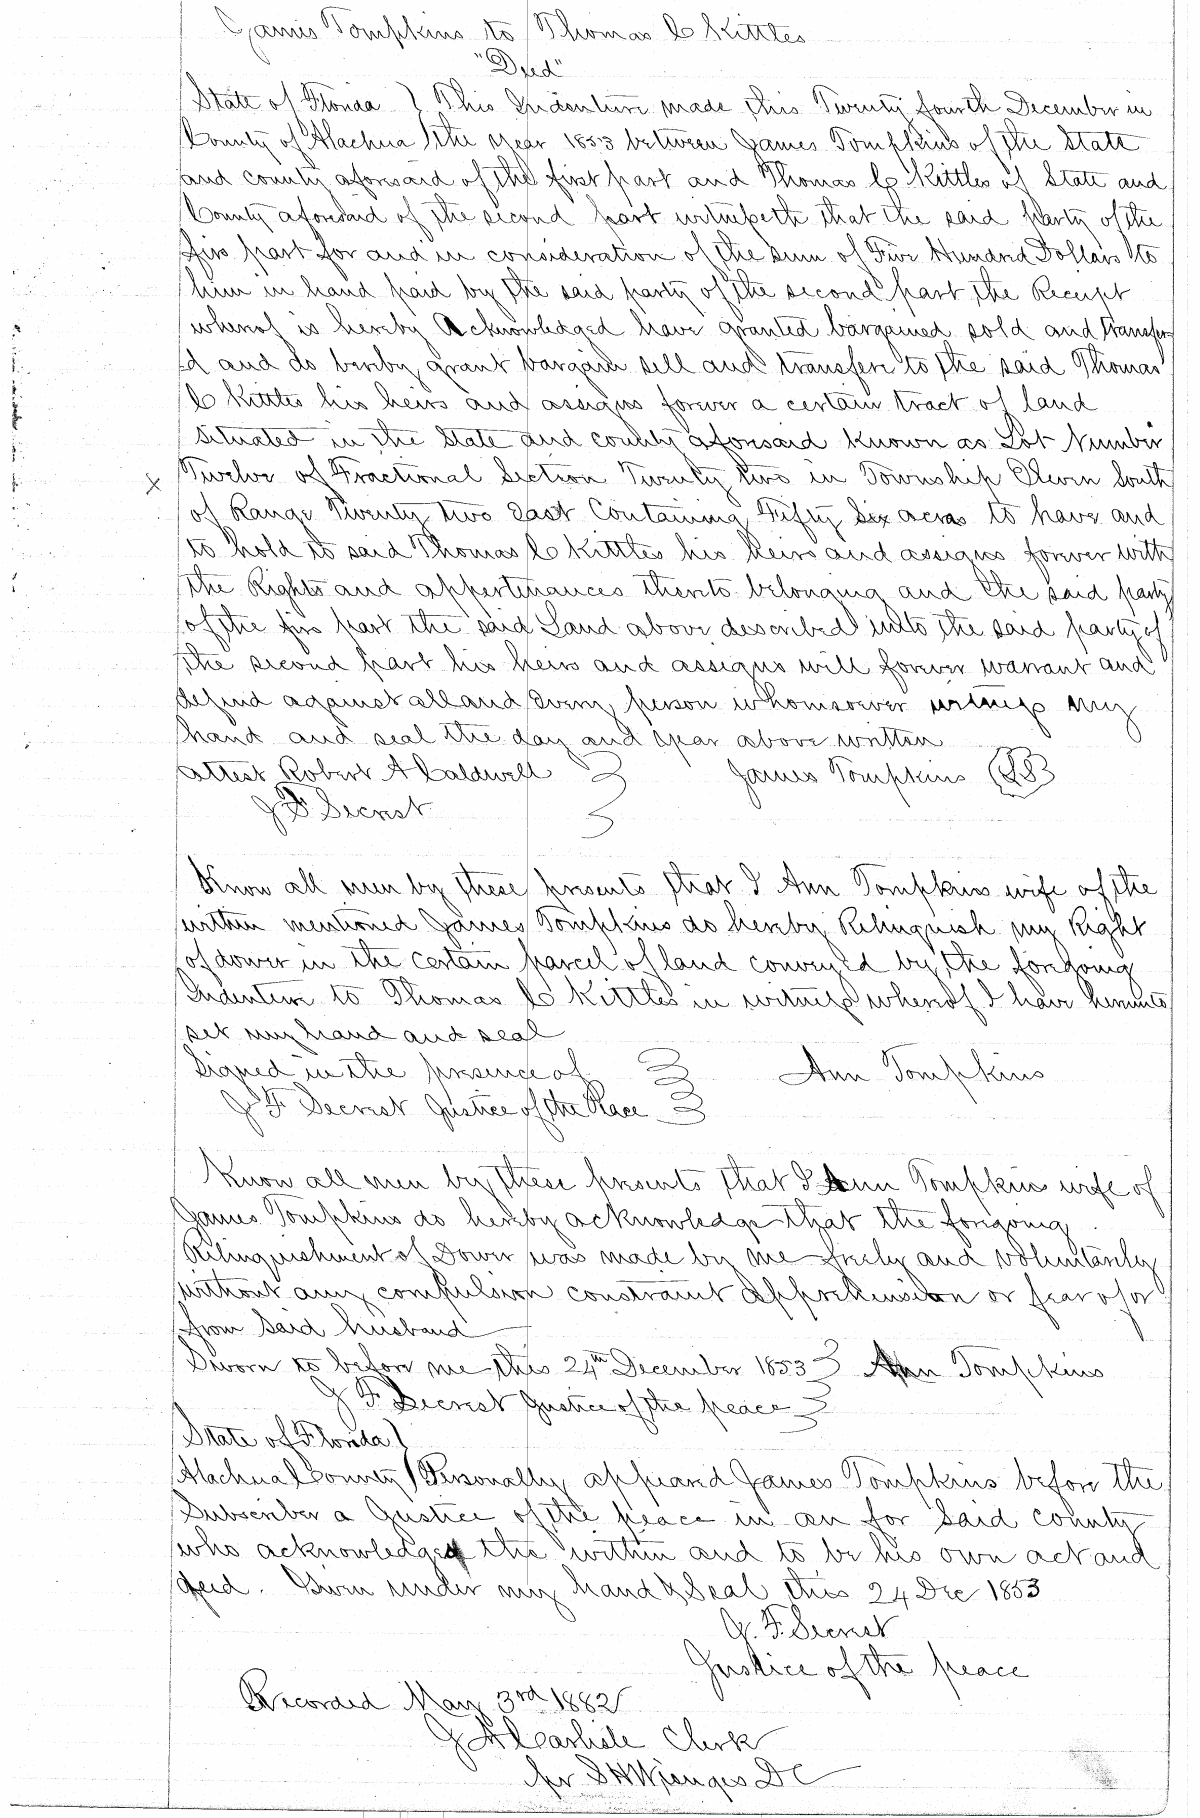 James Tompkins to Thomas C Kittles
"Deed"
State of Florida } This Indenture made this Twenty fourth December in
County of Alachua } the year 1853 between James Tompkins of the State
and county aforsaid of the first part and Thomas C Kittles of State and
County aforesaid of the second part witnesseth that the said Party of the
firs part for and in consideration of the sum of Five Hundred Dollars to
him in hand paid by the said party of the second part the Receipt
whereof is hereby Acknowledged have granted bargained sold and transfer
d and do hereby grant bargain sell and transfer to the said Thomas
C Kittles his heirs and assigns forever a certain tract of land
situated in the State and county aforesaid known as Lot Number
x Twelve of Fractional Section Twenty two in Township Eleven South
of Range Twenty two East Containing Fifty Six acres to have and
to hold to said Thomas C Kittles his heirs and assigns forever with
the Rights and appertenances thereto belonging and the said party
of the firs part the said Land above described unto the said party of
the second part his heirs and assigns will forever warrant and
defend against all and every person whomsoever witness my
hand and seal the day and year above written
attest Robert A Caldwell } James Tompkins
J F Secrest }
Know all men by these presents that I Ann Tompkins wife of the
within mentioned James Tompkins do hereby Relinquish my Right
of dower in the certain parcel of land convey'd by the forgoing
Indenture to Thomas C Kittles in witness whereof I have hereunto
set my hand and seal
Signed in the presence of } Ann Tompkins
J F Secrest Justice of the Peace }
Know all men by these presents that I Ann Tompkins wife of
James Tompkins do hereby acknowledge that the forgoing
Relinquishment of Dower was made by me freely and voluntarily
without any compulsion constraint apprehension or fear of or
from said husband
Sworn to before me this 24th December 1853 } Ann Tompkins
J F Secrest Justice of the peace }
State of Florida }
Alachua County } Personally appeared James Tompkins before the
Subscriber a Justice of the peace in an for said county
who acknowledged the within and to be his own act and
deed. Given under my hand & Seal this 24 Dec 1853
J. F. Secrest
Justice of the peace
Recorded May 3rd 1882
J A Carlisle Clerk
per S H Wienges DC